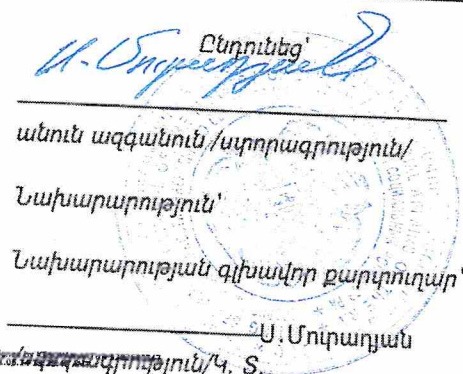 Ընդունեց՝
անուն ազգանուն /ստորագրություն/
Նախարարություն՝
Նախարարության գլխավոր քարտուղար՝
Ս.Մուրադյան
Կ. Տ.